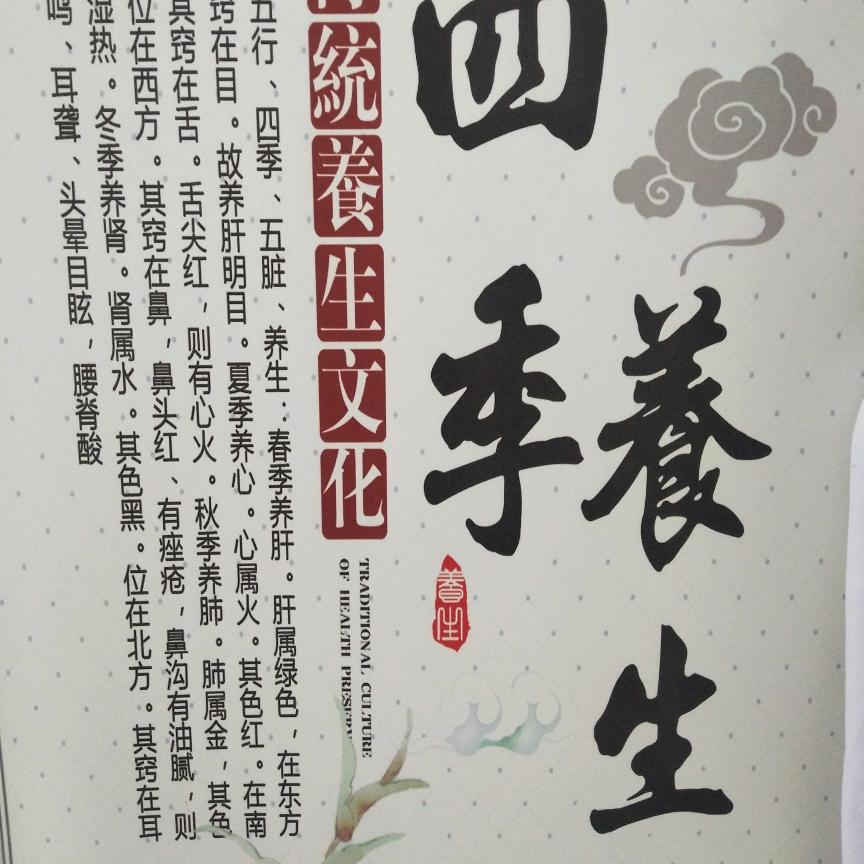 四季
養生
養生
統養生文化
TRADITIONAL CULTURE
OF HEALTH PRESERV
五行、四季、五脏、养生：春季养肝。肝属绿色，在东方
窍在目。故养肝明目。夏季养心。心属火。其色红。在南
其窍在舌。舌尖红，则有心火。秋季养肺。肺属金，其色
位在西方。其窍在鼻，鼻头红、有痤疮，鼻沟有油腻，则
湿热。冬季养肾。肾属水。其色黑。位在北方。其窍在耳
鸣、耳聋、头晕目眩，腰脊酸